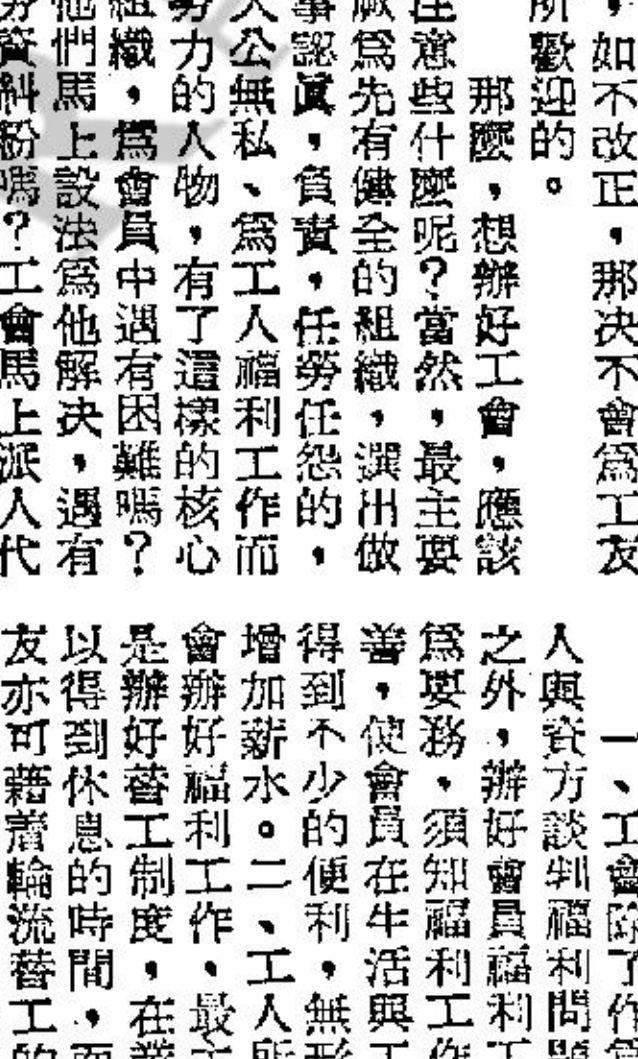 ，如不改正，那决不會爲工友
所歡迎的。
那麼，想辦好工會，應該
注意些什麼呢？當然，最主要
厥爲先有健全的組織，選出做
事認眞，負責，任勞任怨的，
大公無私、爲工人福利工作而
努力的人物，有了這樣的核心
組織，爲會員中遇有困難嗎？
他們馬上設法爲他解决，遇有
勞資糾紛嗎？工會馬上派人代
一、工會除了作爲
人與資方談判福利問題
之外，辦好會員福利工
爲要務，須知福利工作
善，使會員在生活與工
得到不少的便利，無形
增加薪水。二、工人所
會辦好福利工作，最主
是辦好替工制度，在業
以得到休息的時間，而
友亦可藉着輪流替工的